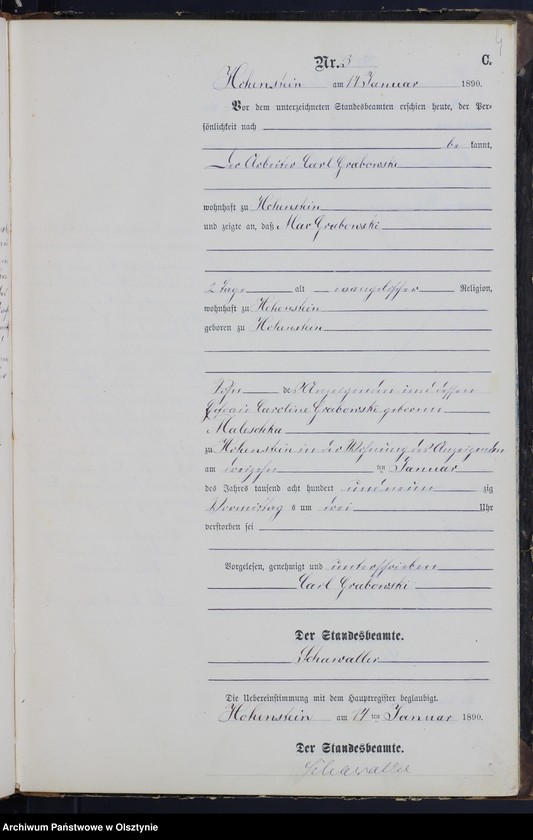 4
Nr. 3 C.
Hohenstein am 14 Januar 1890.
Vor dem unterzeichneten Standesbeamten erschien heute, der Per-
sönlichkeit nach
be kannt,
Der Arbeiter Carl Grabowski
wohnhaft zu Hohenstein
und zeigte an, daß Max Grabowski
2 Tage alt evangelischer Religion,
wohnhaft zu Hohenstein
geboren zu Hohenstein
Sohn des Anzeigenden und dessen
Ehefrau Caroline Grabowski geborene
Maleschka
zu Hohenstein in der Wohnung des Anzeigenden
am dreizehn ten Januar
des Jahres tausend acht hundert und neun zig
Vormittag s um drei Uhr
verstorben sei
Vorgelesen, genehmigt und unterschrieben
Carl Grabowski
Der Standesbeamte.
Schawaller
Die Uebereinstimmung mit dem Hauptregister beglaubigt.
Hohenstein am 14 ten Januar 1890.
Der Standesbeamte.
Schawaller
Archiwum Państwowe w Olsztynie